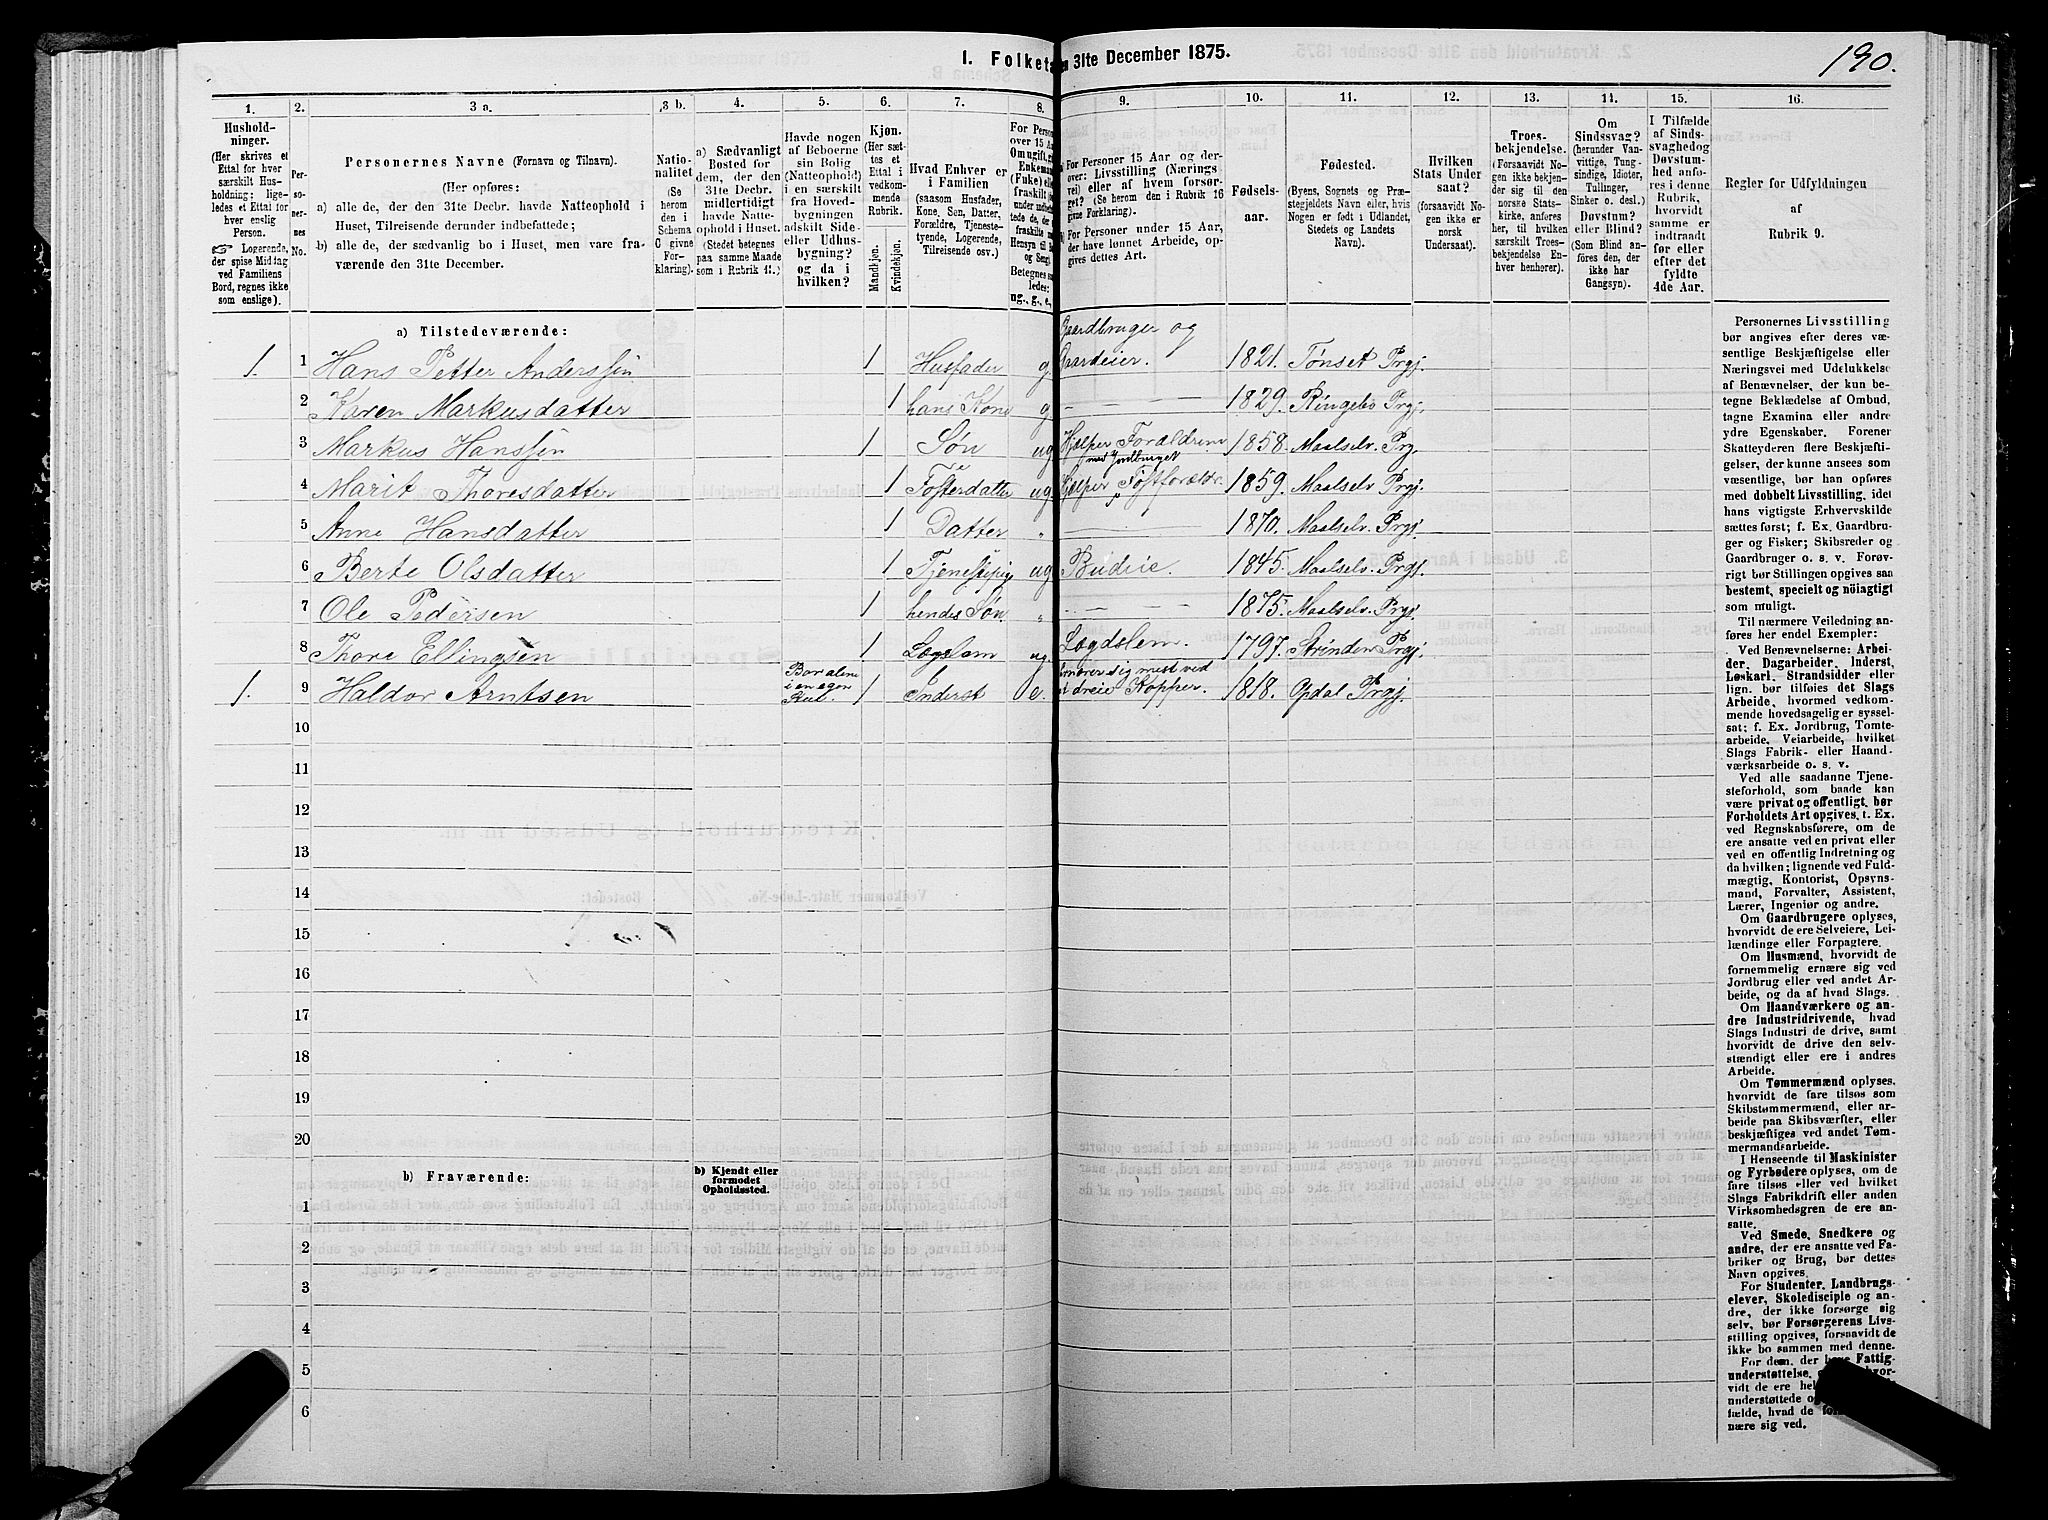 190.
I. Folketa
en 31te December 1875.
1.
2.
3 a.
3 b.
4.
5.
6.
7.
8.
9.
10.
11.
12.
13.
14.
15.
16.
Hushold-
ninger.
(Her skrives et
Ettal for hver
særskilt Hus-
holdning; lige-
ledes et Ettal for
hver enslig
Person.
☞ Logerende,
der spise Middag
ved Familiens
Bord, regnes ikke
som enslige).
Per-
so-
ner-
nes
No.
Personernes Navne (Fornavn og Tilnavn).
(Her opføres:
a) alle de, der den 31te Decbr. havde Natteophold i
Huset, Tilreisende derunder indbefattede;
b) alle de, der sædvanlig bo i Huset, men vare fra-
værende den 31te December.
Natio-
nalitet
(Se
herom
den i
Schema
C givne
For-
klaring).
a) Sædvanligt
Bosted for
dem, der den
31te Decbr.
midlertidigt
havde Natte-
ophold i Huset.
(Stedet betegnes
paa samme Maade
som i Rubrik 11.)
Havde nogen
af Beboerne
sin Bolig
(Natteophold)
i en særskilt
fra Hoved-
bygningen
adskilt Side-
eller Udhus-
bygning?
og da i
hvilken?
Kjøn.
(Her sæt-
tes et
Ettal i
vedkom-
mende
Rubrik.
Mandkjøn.
Kvindekjøn.
Hvad Enhver er
i Familien
(saasom Husfader,
Kone, Søn, Datter,
Forældre, Tjeneste-
tyende, Logerende,
Tilreisende osv.)
For Person
over 15 Aar
Om ugift, g
Enkeman
(Fuke) ell
fraskilt
tede de,
fraskilte
Hensyn til
og Seng
Betegnes sa
ledes:
ug., g., e.,
For Personer 15 Aar og der-
over: Livsstilling (Nærings-
vei) eller af hvem forsør-
get? (Se herom den i Rubrik 16
givne Forklaring).
For Personer under 15 Aar,
der have lønnet Arbeide, op-
gives dettes Art.
Fødsels-
aar.
Fødested.
(Byens, Sognets og Præ-
stegjeldets Navn eller, hvis
Nogen er født i Udlandet,
Stedets og Landets
Navn).
Hvilken
Stats Under
saat?
(forsaavidt No-
gen ikke er
norsk
Undersaat).
Troes-
bekjendelse.
(Forsaavidt No-
gen ikke bekjen-
der sig til den
norske Stats-
kirke, anføres
her, til hvilken
særskilt Troes-
bekjendelse En-
hver henhører).
Om
Sindssvag?
(herunder Van-
vittige, Tung-
sindige, Idioter,
Tullinger,
Sinker o. desl.)
Døvstum?
eller Blind?
(Som Blind an-
føres den, der
ikke har
Gangsyn).
I Tilfælde
af Sinds-
svaghed og
Døvstum-
hed anfø-
res i denne
Rubrik,
hvorvidt
samme er
indtraadt
før eller
efter det
fyldte
4de Aar.
Regler for Udfyldningen
af
Rubrik 9.
a) Tilstedeværende:
1. 1 Hans Petter Anderssen 1 Husfader g. Gaardbruger og Gaardeier. 1821. Tønset Prgj.
2 Karen Markusdatter 1 hans Kone g. — — 1829. Ringebo Prgj.
3 Markus Hanssen 1 Søn ug. Hjælper Forældrene med Jordbruget 1858. Maalselv. Prg.
4 Marit Thoresdatter 1 Fosterdatter ug. Hjælper 1859. Maalselv Prgj.
5 Anne Hansdatter 1 Datter " — 1870. Maalselv. Prgj.
6 Berte Olsdatter 1 ug. Budeie. 1845. Maalselv. Prgj.
7 Ole Pedersen 1 hendes Søn " — — 1875. Maalselv. Prgj.
8 Thore Ellingsen 1 Lægslem ug. Lægdslem. 1797. Strinden Prgj.
1. 9 Haldor Arntsen Bor alene i en egen Stue. 1 Inderst e. ernærer sig mest ved at dreie Kopper. 1818. Opdal Prgj.
10
11
12
13
14
15
16
17
18
19
20
b) Fraværende:
b) Kjendt eller
formodet
Opholdssted.
1
2
3
4
5
6
Personernes Livsstilling
bør angives efter deres væ-
sentlige Beskjæftigelse eller
Næringsvei med Udelukkelse
af Benævnelser, der kun be-
tegne Beklædelse af Ombud,
tagne Examina eller andre
ydre Egenskaber. Forener
Skatteyderen flere Beskjæfti-
gelser, der kunne ansees som
væsentlige, bør han opføres
med dobbelt Livsstilling, idet
hans vigtigste Erhvervskilde
sættes først; f. Ex. Gaardbru-
ger og Fisker; Skibsreder og
Gaardbruger o. s. v. Forøv-
rigt bør Stillingen opgives saa
bestemt, specielt og nöiagtigt
som muligt.
Til nærmere Veiledning an-
føres her endel Exempler:
Ved Benævnelserne: Arbei-
der, Dagarbeider, Inderst,
Løskarl, Strandsidder eller
lign. bør tilføies det Slags
Arbeide, hvormed vedkom-
mende hovedsagelig er syssel-
sat; f. Ex. Jordbrug, Tomte-
arbeide, Veiarbeide, hvilket
Slags Fabrik- eller Haand-
værksarbeide o. s. v.
Ved alle saadanne Tjene-
steforhold, som baade kan
være privat og offentligt, bør
Forholdets Art opgives, t. Ex.
ved Regnskabsførere, om de
ere ansatte ved en privat eller
ved en offentlig Indretning og
da hvilken; lignende ved Fuld-
mægtig, Kontorist, Opsyns-
mand, Forvalter, Assistent,
Lærer, Ingeniør og andre.
Om Gaardbrugere oplyses,
hvorvidt de ere Selveiere, Lei-
lændinge eller Forpagtere.
Om Husmænd, hvorvidt de
fornemmelig ernære sig ved
Jordbrug eller ved andet Ar-
beide, og da af hvad Slags.
Om Haandværkere og an-
dre Industridrivende, hvad
Slags Industri de drive, samt
hvorvidt de drive den selv-
stændigt eller ere i andres
Arbeide.
Om Tømmermænd oplyses,
hvorvidt de fare tilsøs som
Skibstømmermænd, eller ar-
beide paa Skibsværfter, eller
beskjæftiges ved andet Tøm-
mermandsarbeide.
I Henseende til Maskinister
og Fyrbødere oplyses, om de
fare tilsøs eller ved hvilket
Slags Fabrikdrift eller anden
Virksomhedsgren de ere an-
satte.
Ved Smede, Snedkere og
andre, der ere ansatte ved Fa-
briker og Brug, bør dettes
Navn opgives.
For Studenter, Landbrugs-
elever, Skoledisciple og an-
dre, der ikke forsørge sig
selv, bør Forsørgerens Livs-
stilling opgives, forsaavidt de
ikke bo sammen med denne.
For dem, der have Fattig-
understøttelse,
vidt de ere
understøttede
fælde, hvad de
nære sig ved.